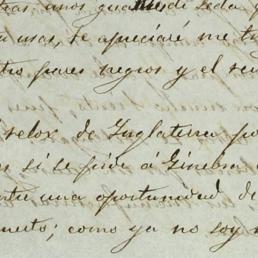 unos guantes de seda
usar, te apreciaré me
pares negros y el
relox de Inglaterra
si se pide á Ginebra
una oportunidad de
como ya no soy